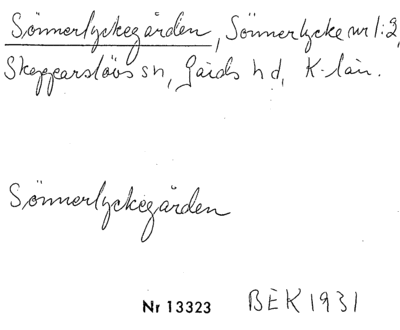 Sönnerlyckegården, Sönnerlycke nr 1:2,
Skepparslövs sn, Gärds hd, K-län.
Sönnerlyckegården
Nr 13323 BEK 1931